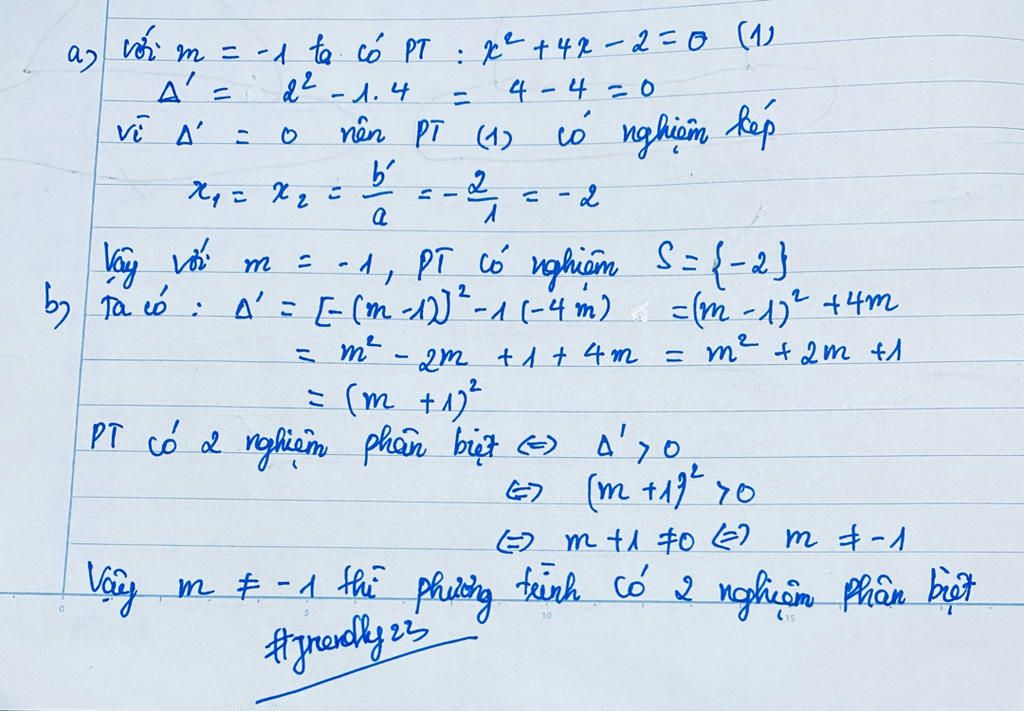 a) với m = -1 ta có PT : x² + 4x - 2 = 0 (1)
Δ' = 2² - 1.4 = 4 - 4 = 0
vì Δ' = 0 nên PT (1) có nghiệm kép
x₁ = x₂ = b'/a = - 2/1 = -2
Vậy với m = -1, PT có nghiệm S = {-2}
b) Ta có : Δ' = [-(m-1)]² - 1(-4m) = (m-1)² + 4m
= m² - 2m + 1 + 4m = m² + 2m + 1
= (m + 1)²
PT có 2 nghiệm phân biệt <=> Δ' > 0
<=> (m + 1)² > 0
<=> m + 1 ≠ 0 <=> m ≠ -1
Vậy m ≠ -1 thì phương trình có 2 nghiệm phân biệt
0 5 10 15